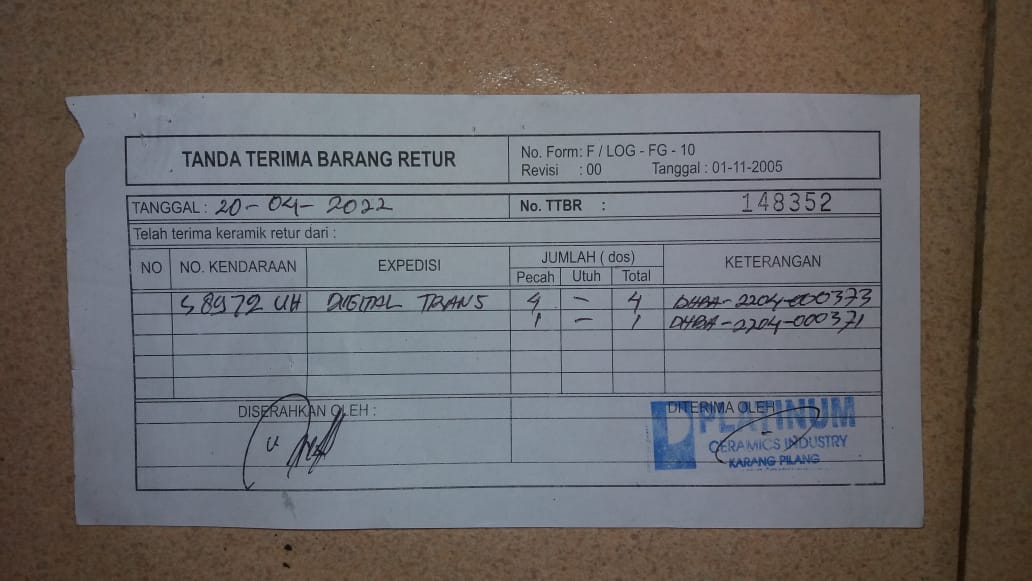 TANDA TERIMA BARANG RETUR
No. Form: F / LOG - FG - 10
Revisi : 00 Tanggal : 01-11-2005
TANGGAL : 20-04-2022 No. TTBR : 148352
Telah terima keramik retur dari :
NO NO. KENDARAAN EXPEDISI JUMLAH ( dos) KETERANGAN
Pecah Utuh Total
S 8972 UH DIGITAL TRANS 4 – 4 DHBA-2204-000373
1 – 1 DHBA-2204-000371
DISERAHKAN OLEH : DITERIMA OLEH
PLATINUM
CERAMICS INDUSTRY
KARANG PILANG